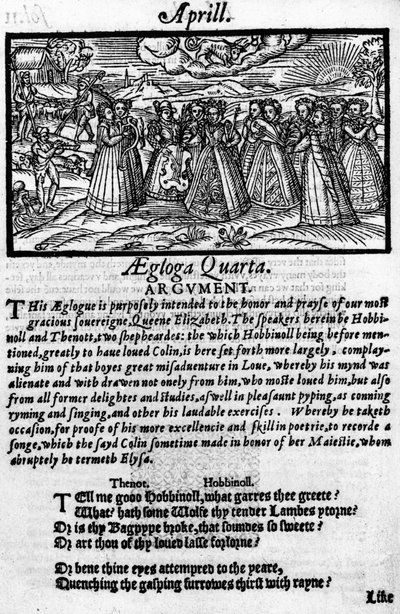 fol. 11
Aprill.
Ægloga Quarta.
ARGVMENT.
THis Æglogue is purposely intended to the honor and prayse of our most
gracious souereigne, Queene Elizabeth. The speakers herein be Hobbi-
noll and Thenott, two shepheardes: the which Hobbinoll being before men-
tioned, greatly to haue loued Colin, is here set forth more largely, complay-
ning him of that boyes great misaduenture in Loue, whereby his mynd was
alienate and with drawen not onely from him, who moste loued him, but also
from all former delightes and studies, aswell in pleasaunt pyping, as conning
ryming and singing, and other his laudable exercises. Whereby he taketh
occasion, for proofe of his more excellencie and skill in poetrie, to recorde a
songe, which the sayd Colin sometime made in honor of her Maiestie, whom
abruptely he termeth Elysa.
Thenot. Hobbinoll.
TEll me good Hobbinoll, what garres thee greete?
What? hath some Wolfe thy tender Lambes ytorne?
Or is thy Bagpype broke, that soundes so sweete?
Or art thou of thy loued lasse forlorne?
Or bene thine eyes attempred to the yeare,
Quenching the gasping furrowes thirst with rayne?
Like